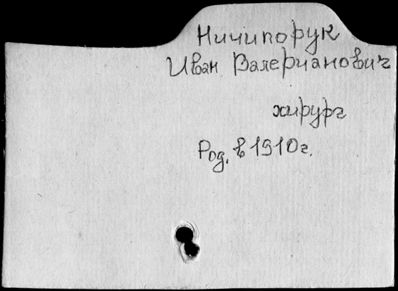 Ничипорук
Иван Валерианович
хирург
Род. в 1910г.